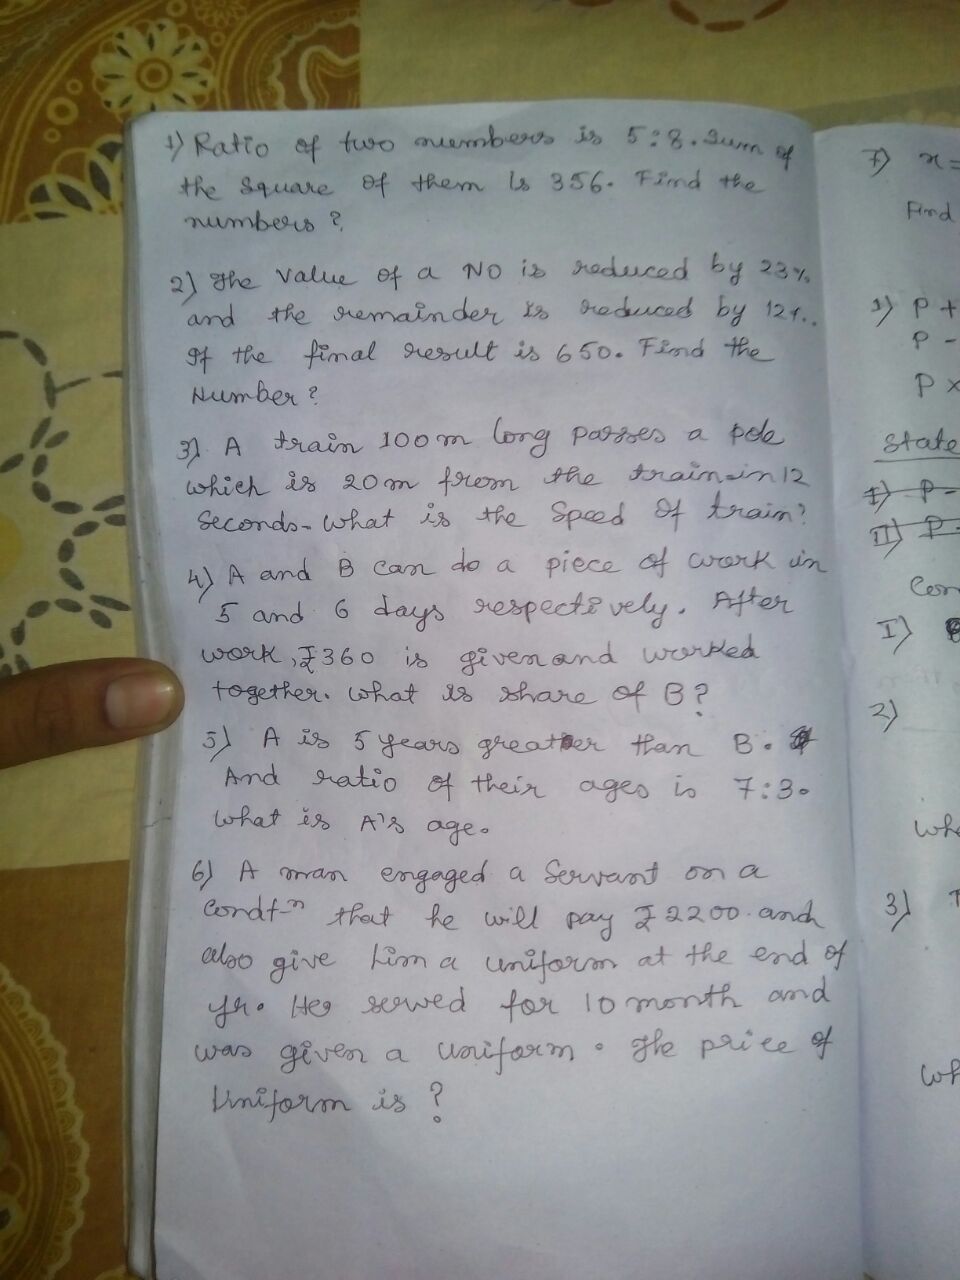 1) Ratio of two numbers is 5:8. Sum of
the Square of them is 356. Find the
numbers?
2) The Value of a NO is reduced by 23%
and the remainder is reduced by 12%.
If the final result is 650. Find the
Number?
3). A train 100m long passes a pole
which is 20m from the train in 12
Seconds. What is the Speed of train?
4) A and B can do a piece of work in
5 and 6 days respectively. After
work, ₹360 is given and worked
together. What is share of B?
5) A is 5 years greater than B.
And ratio of their ages is 7:3.
What is A's age.
6) A man engaged a Servant on a
condt-n that he will pay ₹2200 and
also give him a uniform at the end of
yr. He served for 10 month and
was given a uniform. The price of
Uniform is?
7) x=
Find
1) P +
P -
P x
State
I) P-
II) P-
Con
I)
2)
Wha
3)
Wh